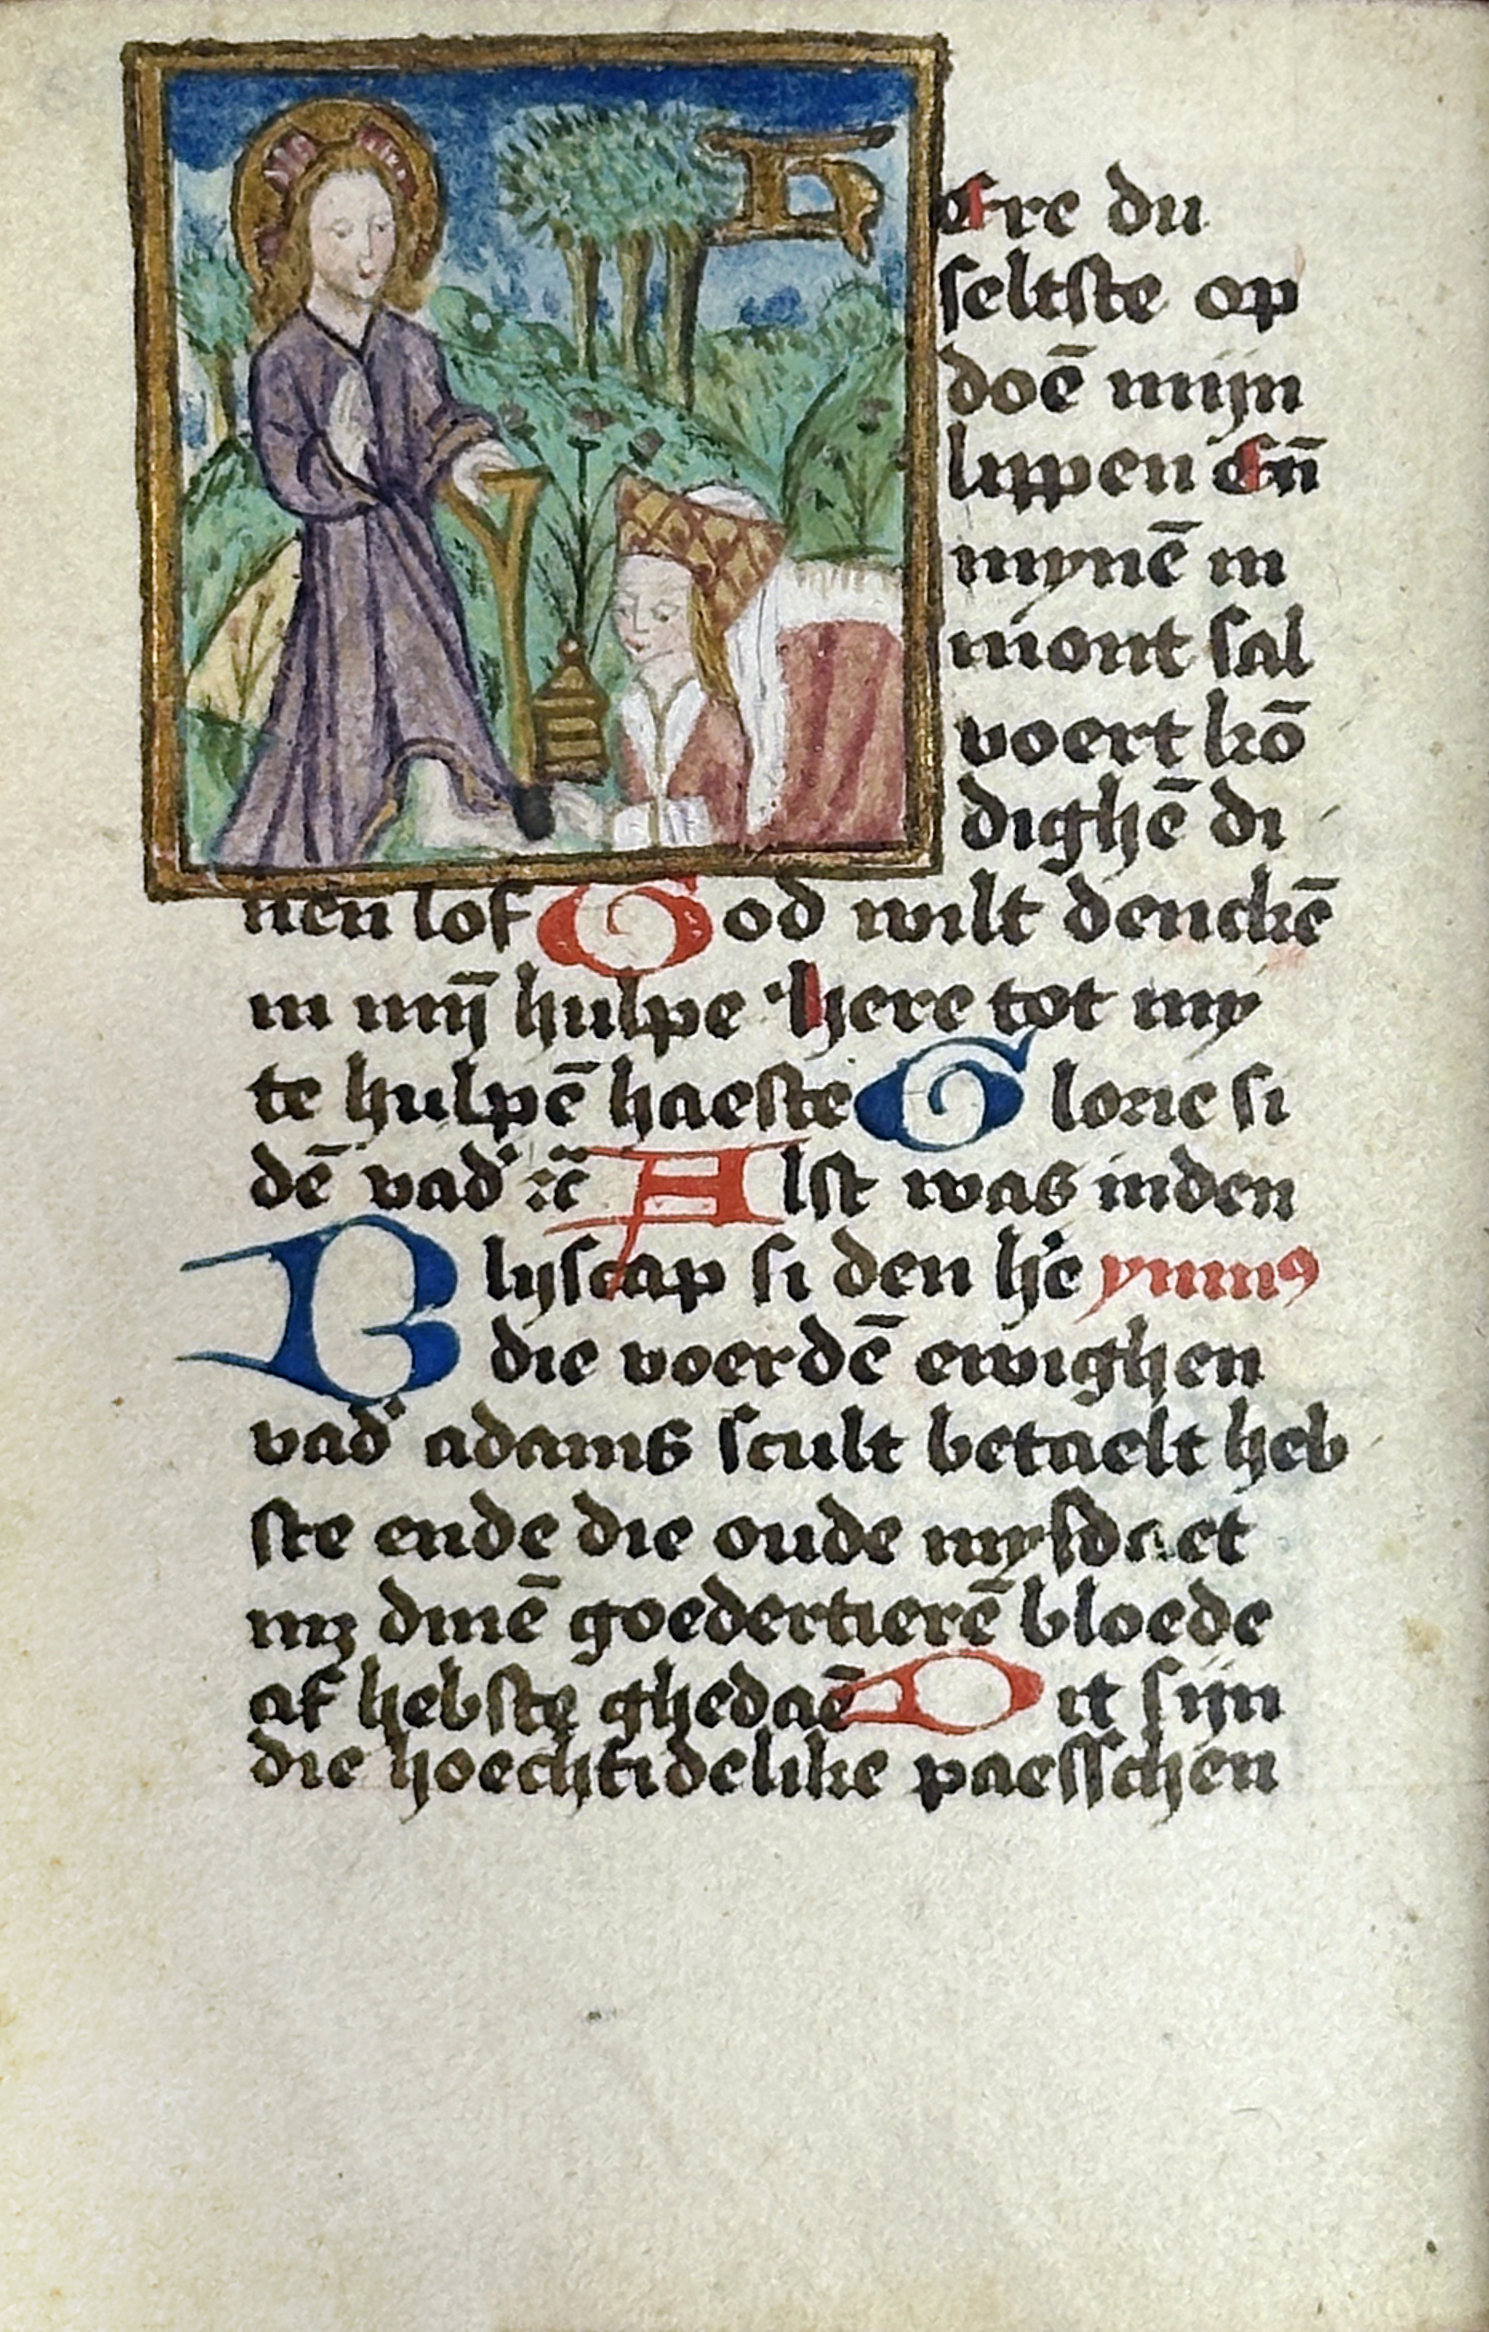 H ere du
seltste op
doē mijn
lippen En̄
mynē m
mont sal
voert kō
dighē di
nen lof God wilt denckē
in mij̄ hulpe here tot my
te hulpē haeste Glorie si
dē vad' ⁊c̄ Alst was inden
Blijscap si den h'e ymnꝰ
die voerdē ewighen
vad' adams scult betaelt heb
ste ende die oude mysdaet
mz dinē goedertierē bloede
af hebste ghedaē Dit sijn
die hoechtidelike paesschen